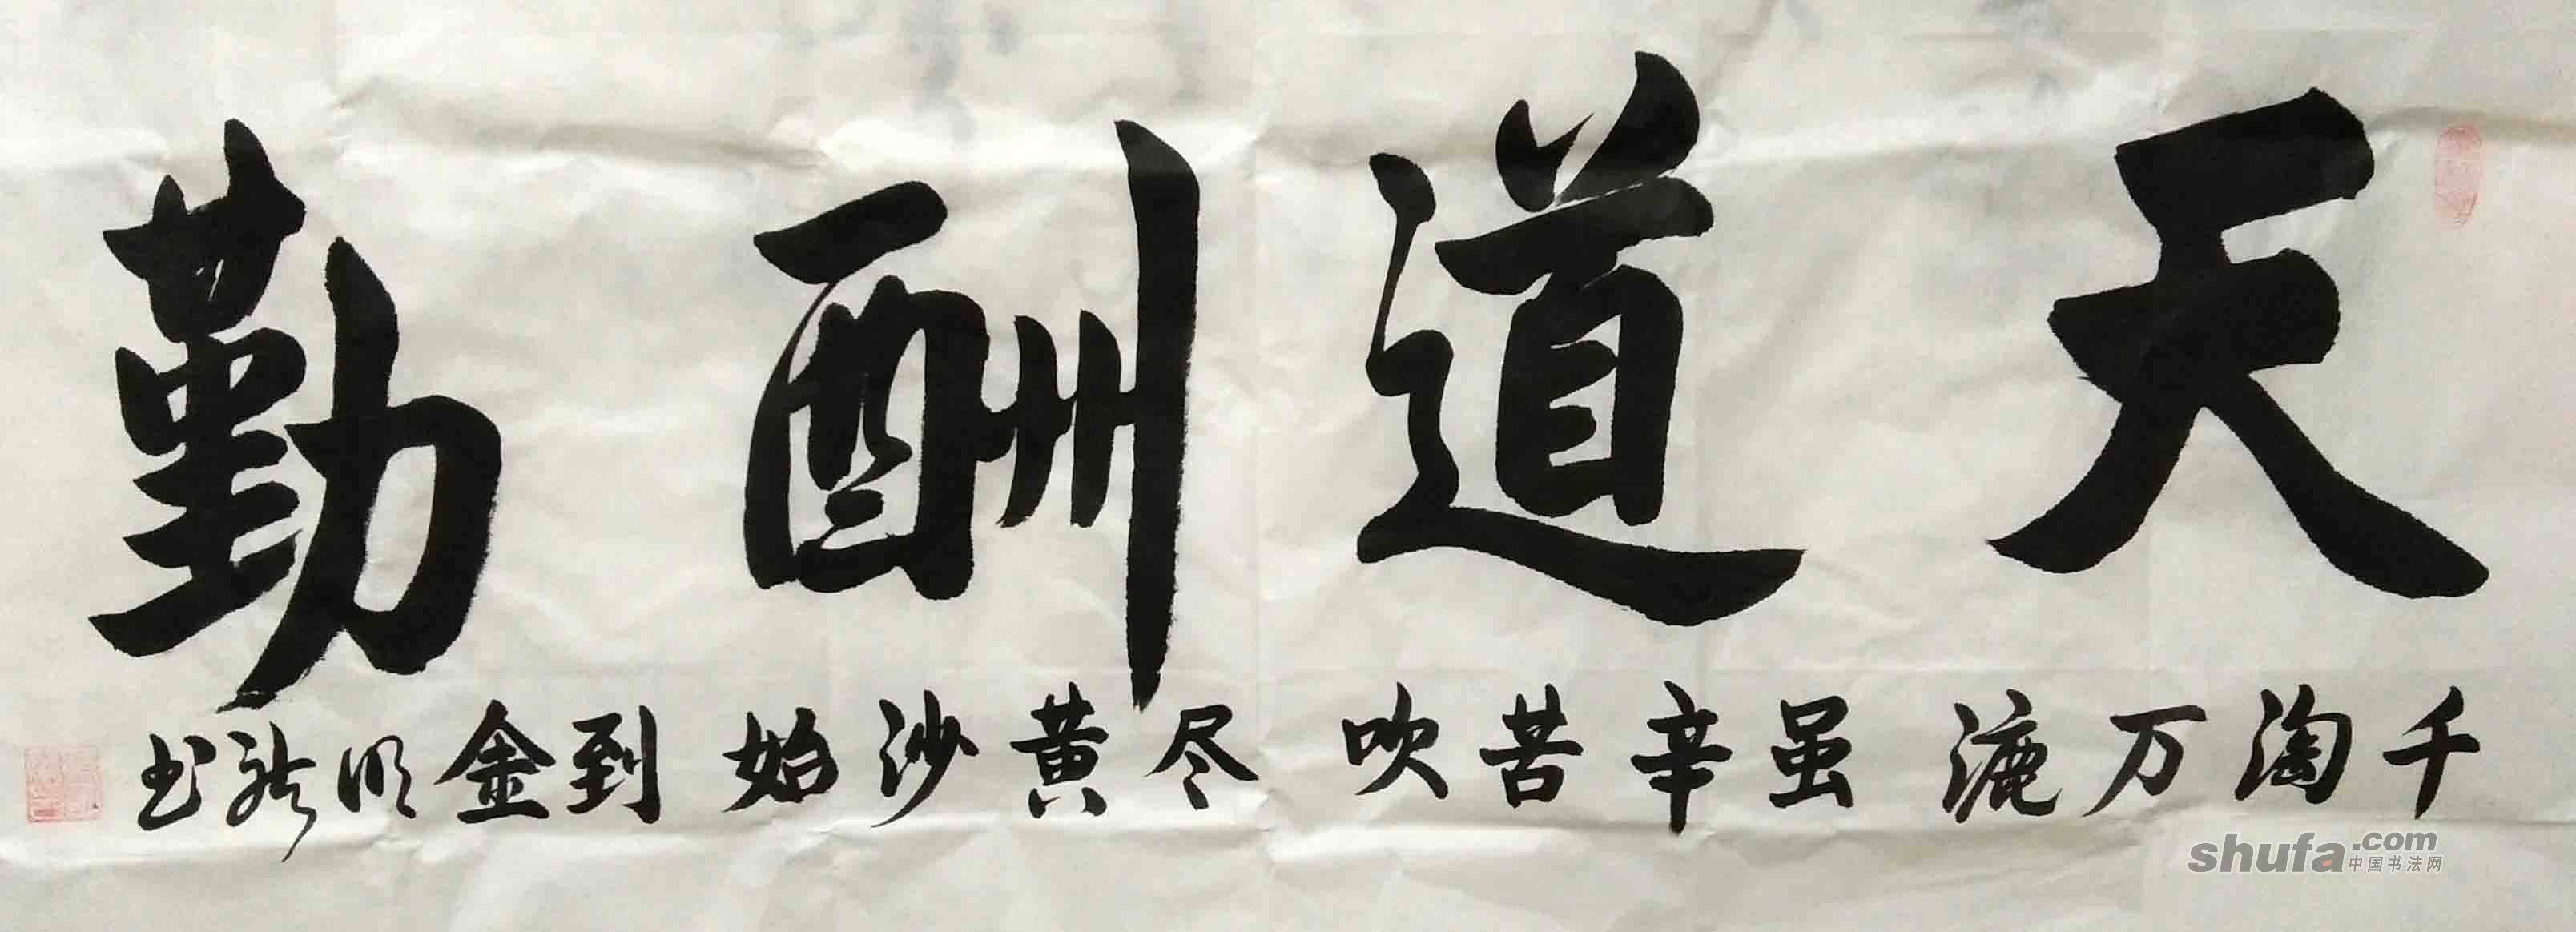 天道酬勤
千淘万漉虽辛苦吹尽黄沙始到金明龙书
shufa.com
中国书法网